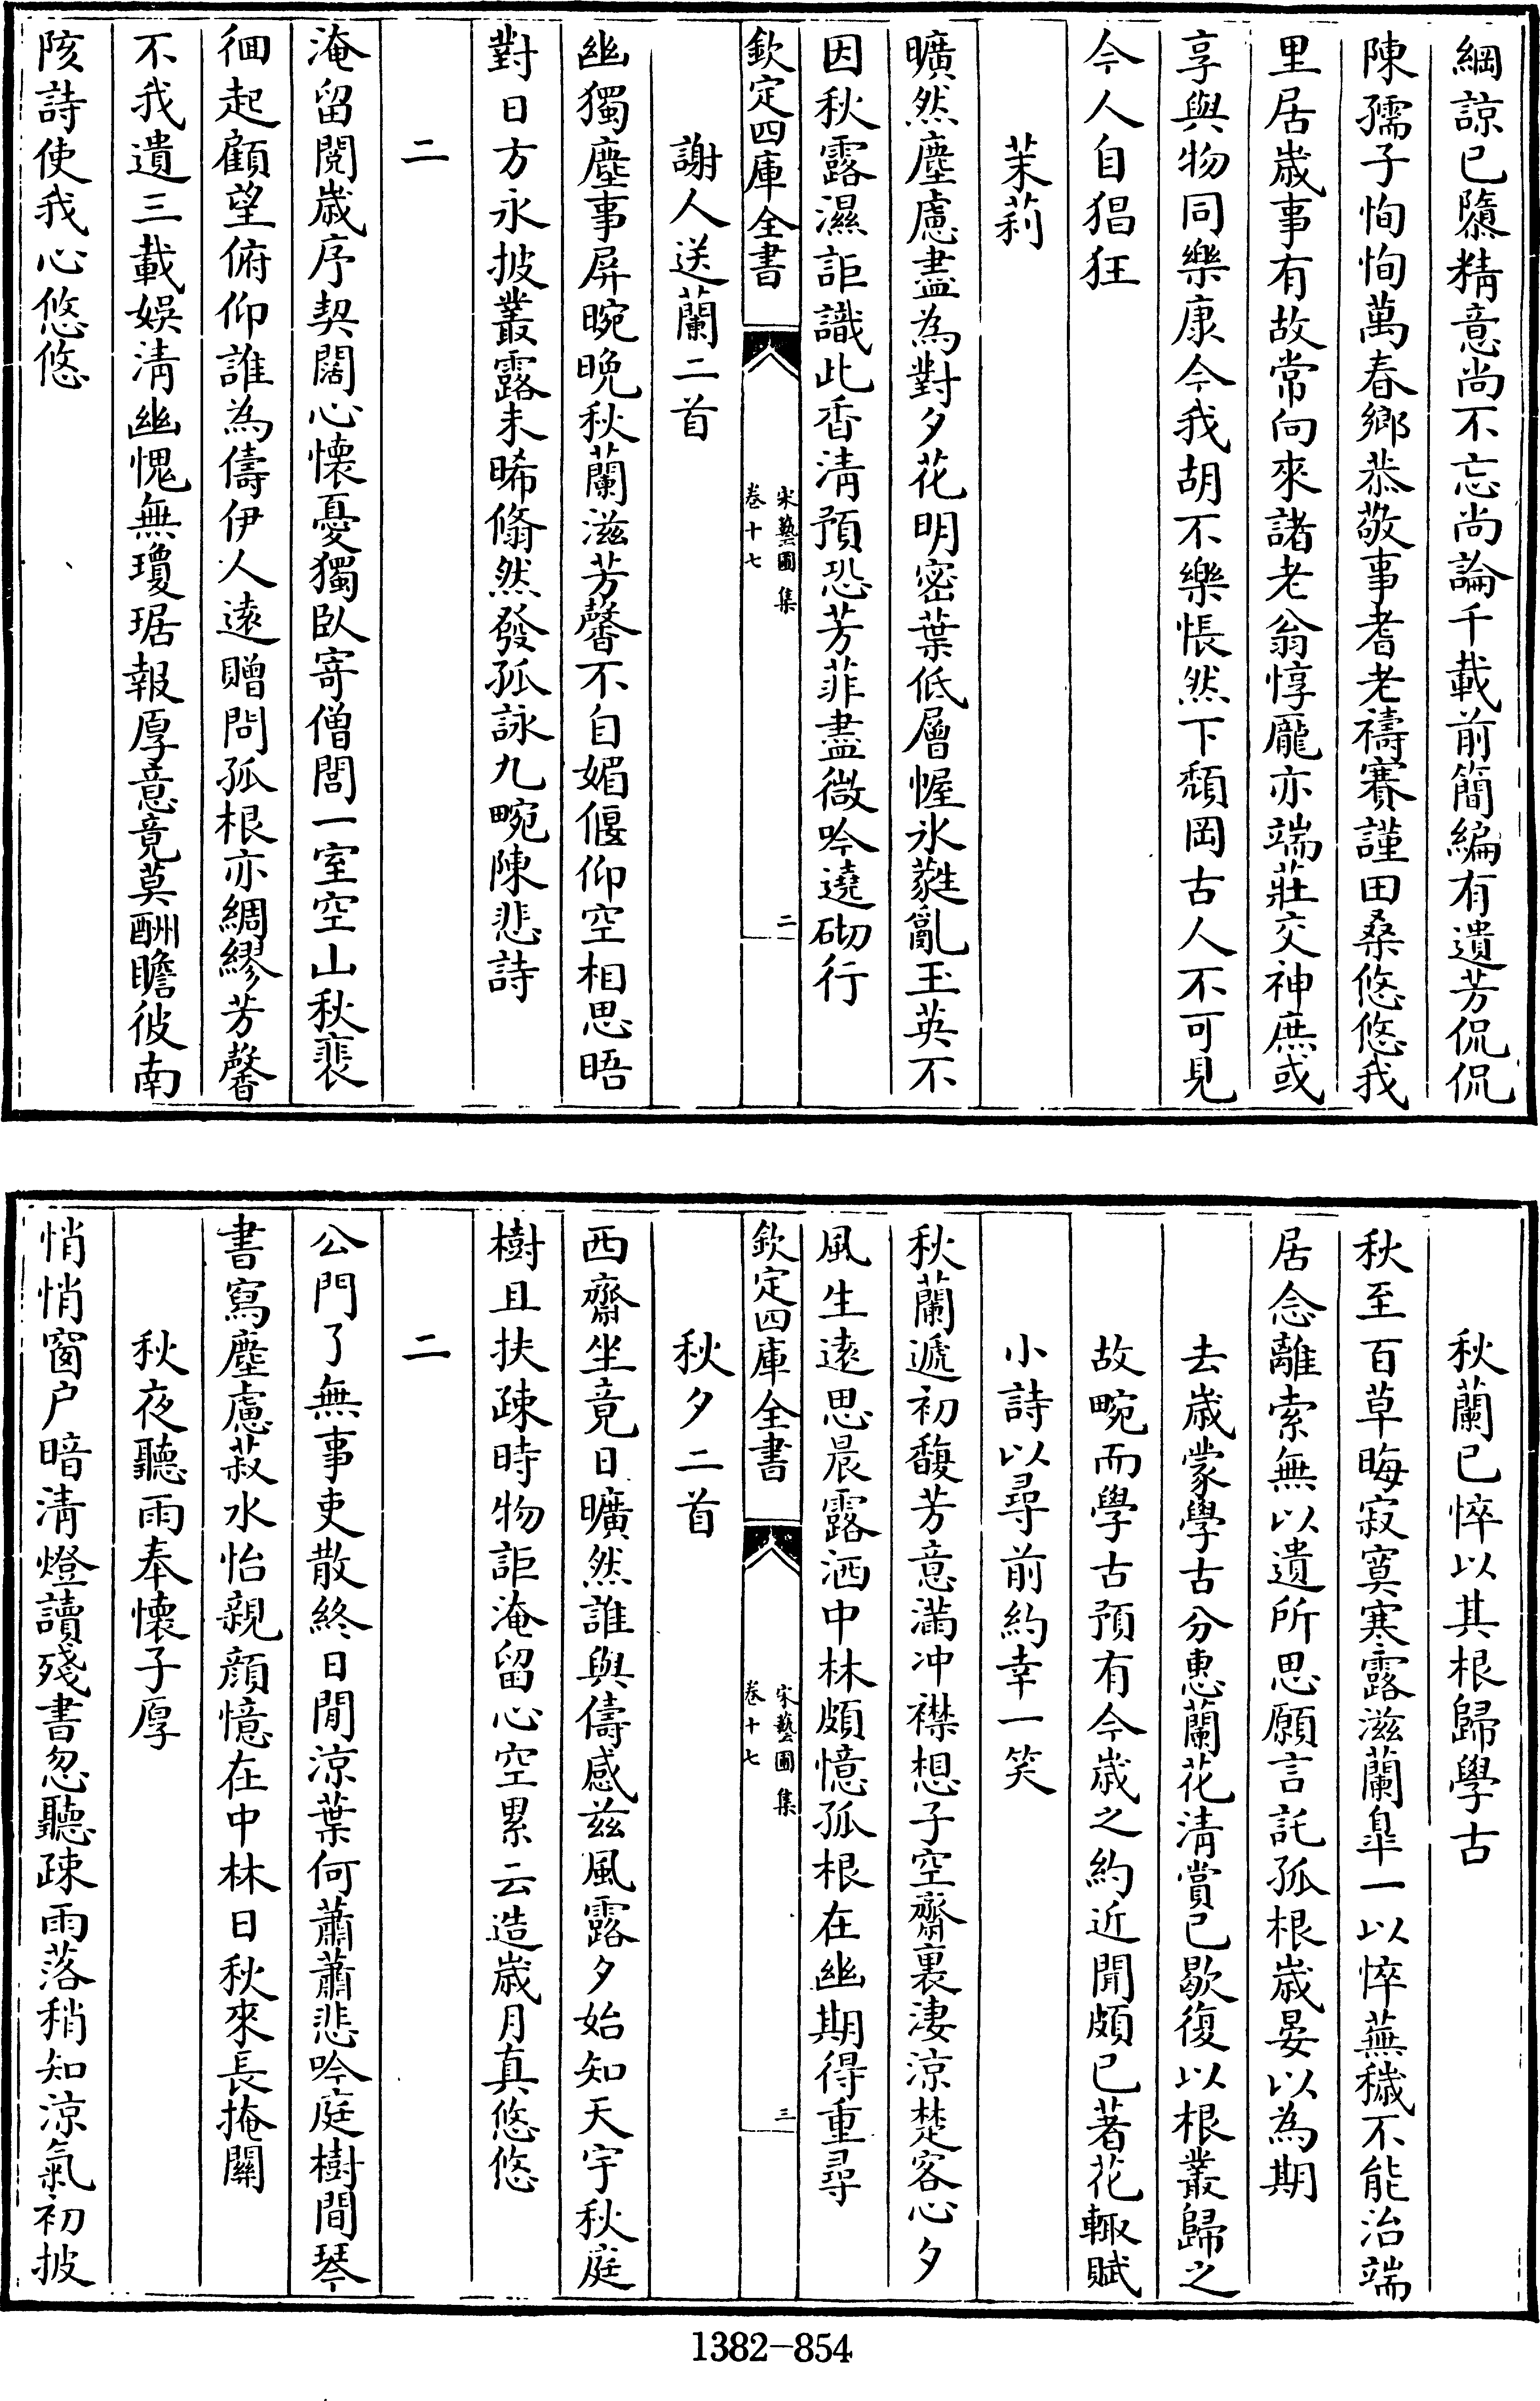 綱諒已隳精意尚不忘尚論千載前簡編有遺芳侃侃
陳孺子恂恂萬春鄉恭敬事耆老禱賽謹田桑悠悠我
里居歳事有故常向來諸老翁惇龐亦端莊交神庶或
享與物同樂康今我胡不樂悵然下頽岡古人不可見
今人自猖狂
茉莉
曠然塵慮盡為對夕花明密葉低層幄氷蕤亂玉英不
因秋露濕詎識此香清預恐芳菲盡微吟遶砌行
欽定四庫全書
宋藝圃集
卷十七
二
謝人送蘭二首
幽獨塵事屏晼晚秋蘭滋芳馨不自媚偃仰空相思晤
對日方永披叢露未晞翛然發孤詠九畹陳悲詩
二
淹留閲歳序契闊心懷憂獨臥寄僧閭一室空山秋裴
徊起顧望俯仰誰為儔伊人逺贈問孤根亦綢繆芳馨
不我遺三載娱清幽愧無瓊琚報厚意竟莫酬瞻彼南
陔詩使我心悠悠
秋蘭已悴以其根歸學古
秋至百草晦寂寞寒露滋蘭臯一以悴蕪穢不能治端
居念離索無以遺所思願言託孤根歳晏以為期
去歳蒙學古分惠蘭花清賞已歇復以根叢歸之
故畹而學古預有今歳之約近聞頗已著花輙賦
小詩以尋前約幸一笑
秋蘭遞初馥芳意滿冲襟想子空齋裏淒涼楚客心夕
風生逺思晨露洒中林頗憶孤根在幽期得重尋
欽定四庫全書
宋藝圃集
卷十七
三
秋夕二首
西齋坐竟日曠然誰與儔感兹風露夕始知天宇秋庭
樹且扶疎時物詎淹留心空累云造歳月真悠悠
二
公門了無事吏散終日閒涼葉何蕭蕭悲吟庭樹間琴
書寫塵慮菽水怡親顔憶在中林日秋來長掩關
秋夜聽雨奉懷子厚
悄悄窗户暗清燈讀殘書忽聽疎雨落稍知涼氣初披
1382-854